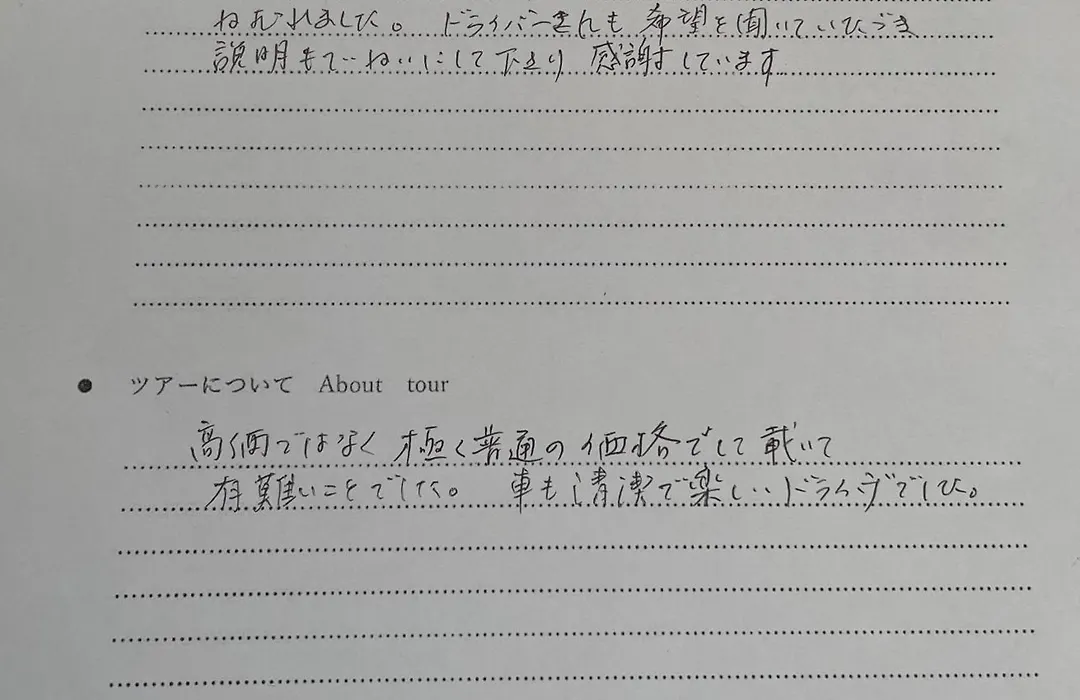 ねむれました。ドライバーさんも希望を聞いていただき
説明もていねいにして下さり感謝しています
● ツアーについて About tour
高価ではなく極く普通の価格でして戴いて
有難いことでした。車も清潔で楽しいドライブでした。